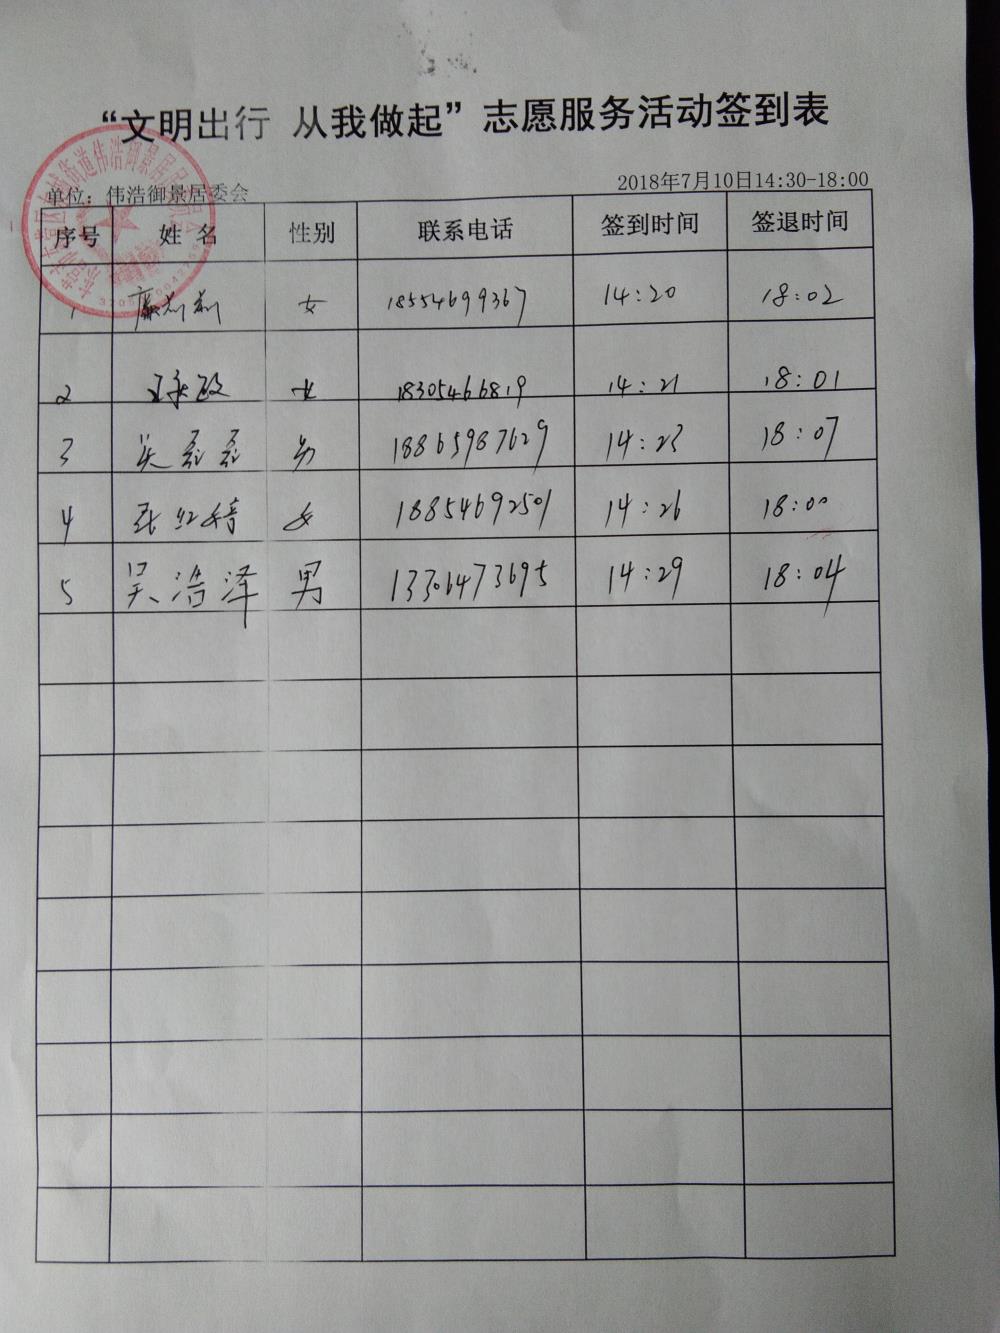 “文明出行 从我做起”志愿服务活动签到表
单位：伟浩御景居委会 2018年7月10日14:30-18:00
序号 姓名 性别 联系电话 签到时间 签退时间
1 女 18554699367 14:20 18:02
2 女 18305466819 14:21 18:01
3 吴磊磊 男 18865987629 14:23 18:07
4 张红婧 女 18854692501 14:26 18:00
5 吴浩泽 男 13306473695 14:29 18:04